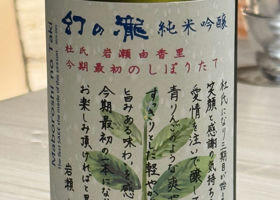 幻の瀧 純米吟醸
杜氏 岩瀬由香里
今期最初のしぼりたて
杜氏になり二期目が始
笑顔と感謝の気持ち
愛情を注いで醸して
青りんごのような爽や
すっきりとした軽やか
旨みある味わい、感
今期最初の一本を
お楽しみ頂ければと思
岩瀬
Maboroshi no Taki